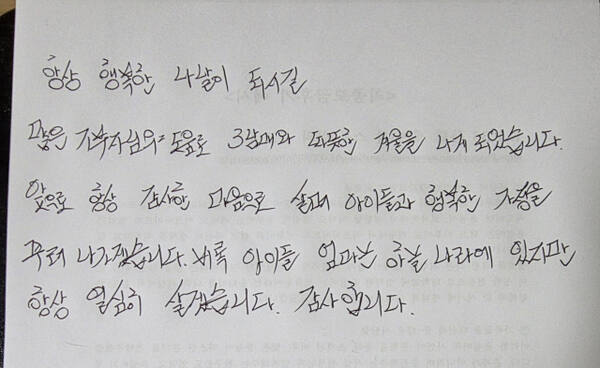 항상 행복한 나날이 되시길
많은 기부자님의 도움으로 3남매와 따뜻한 겨울을 나게 되었습니다.
앞으로 항상 감사한 마음으로 살며 아이들과 행복한 가정을
꾸려 나가겠습니다. 비록 아이들 엄마는 하늘나라에 있지만
항상 열심히 살겠습니다. 감사합니다.